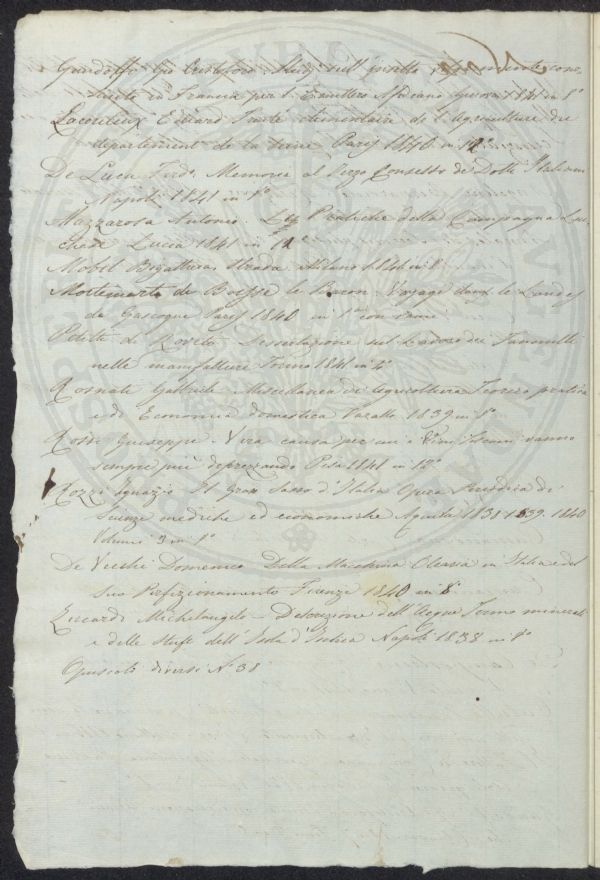 Gandolfi Gio Cristoforo. sull'
in Francia per l' Genova 1841 in 8°
Edward Traité elementaire de l'Agriculture du
departement de la Paris 1840 in 12°
De Luca Ferd. Memorie al Congresso de Dotti Italiani
Napoli 1841 in 8°
Mazzarosa Antonio. Le Pratiche della Campagna Luc
chese Lucca 1841 in
Strada Milano 1841 in 8°
Mortemarte de Boisse le Baron Voyage dans les Landes
de Gascogne Paris 1840 in con rami
Petitti de Roreto Dissertazione sul Lavoro dei Fanciulli
nelle manifatture Torino 1841 in 4°
Rosnati Gabriele Miscellanea di Agricoltura Teorico pratica
ed Economia domestica Varallo 1839 in 8°
Rossi Giuseppe - Vera causa per cui i Vini Toscani vanno
sempre più deprezzando Pisa 1841 in 12°
Rozzi Ignazio Il Gran Sasso d'Italia Opera Periodica di
Scienze mediche ed economiche Aquila 1838 1839. 1840
Volumi 3 in 8°
De Vecchi Domenico Della Macchina Olearia in Italia e del
suo Perfezionamento Firenze 1840 in 8°
Ziccardi Michelangelo - Descrizione dell'Acque Termo minerali
e delle stufe dell'Isola d'Ischia Napoli 1838 in 8°
Opuscoli diversi N° 38